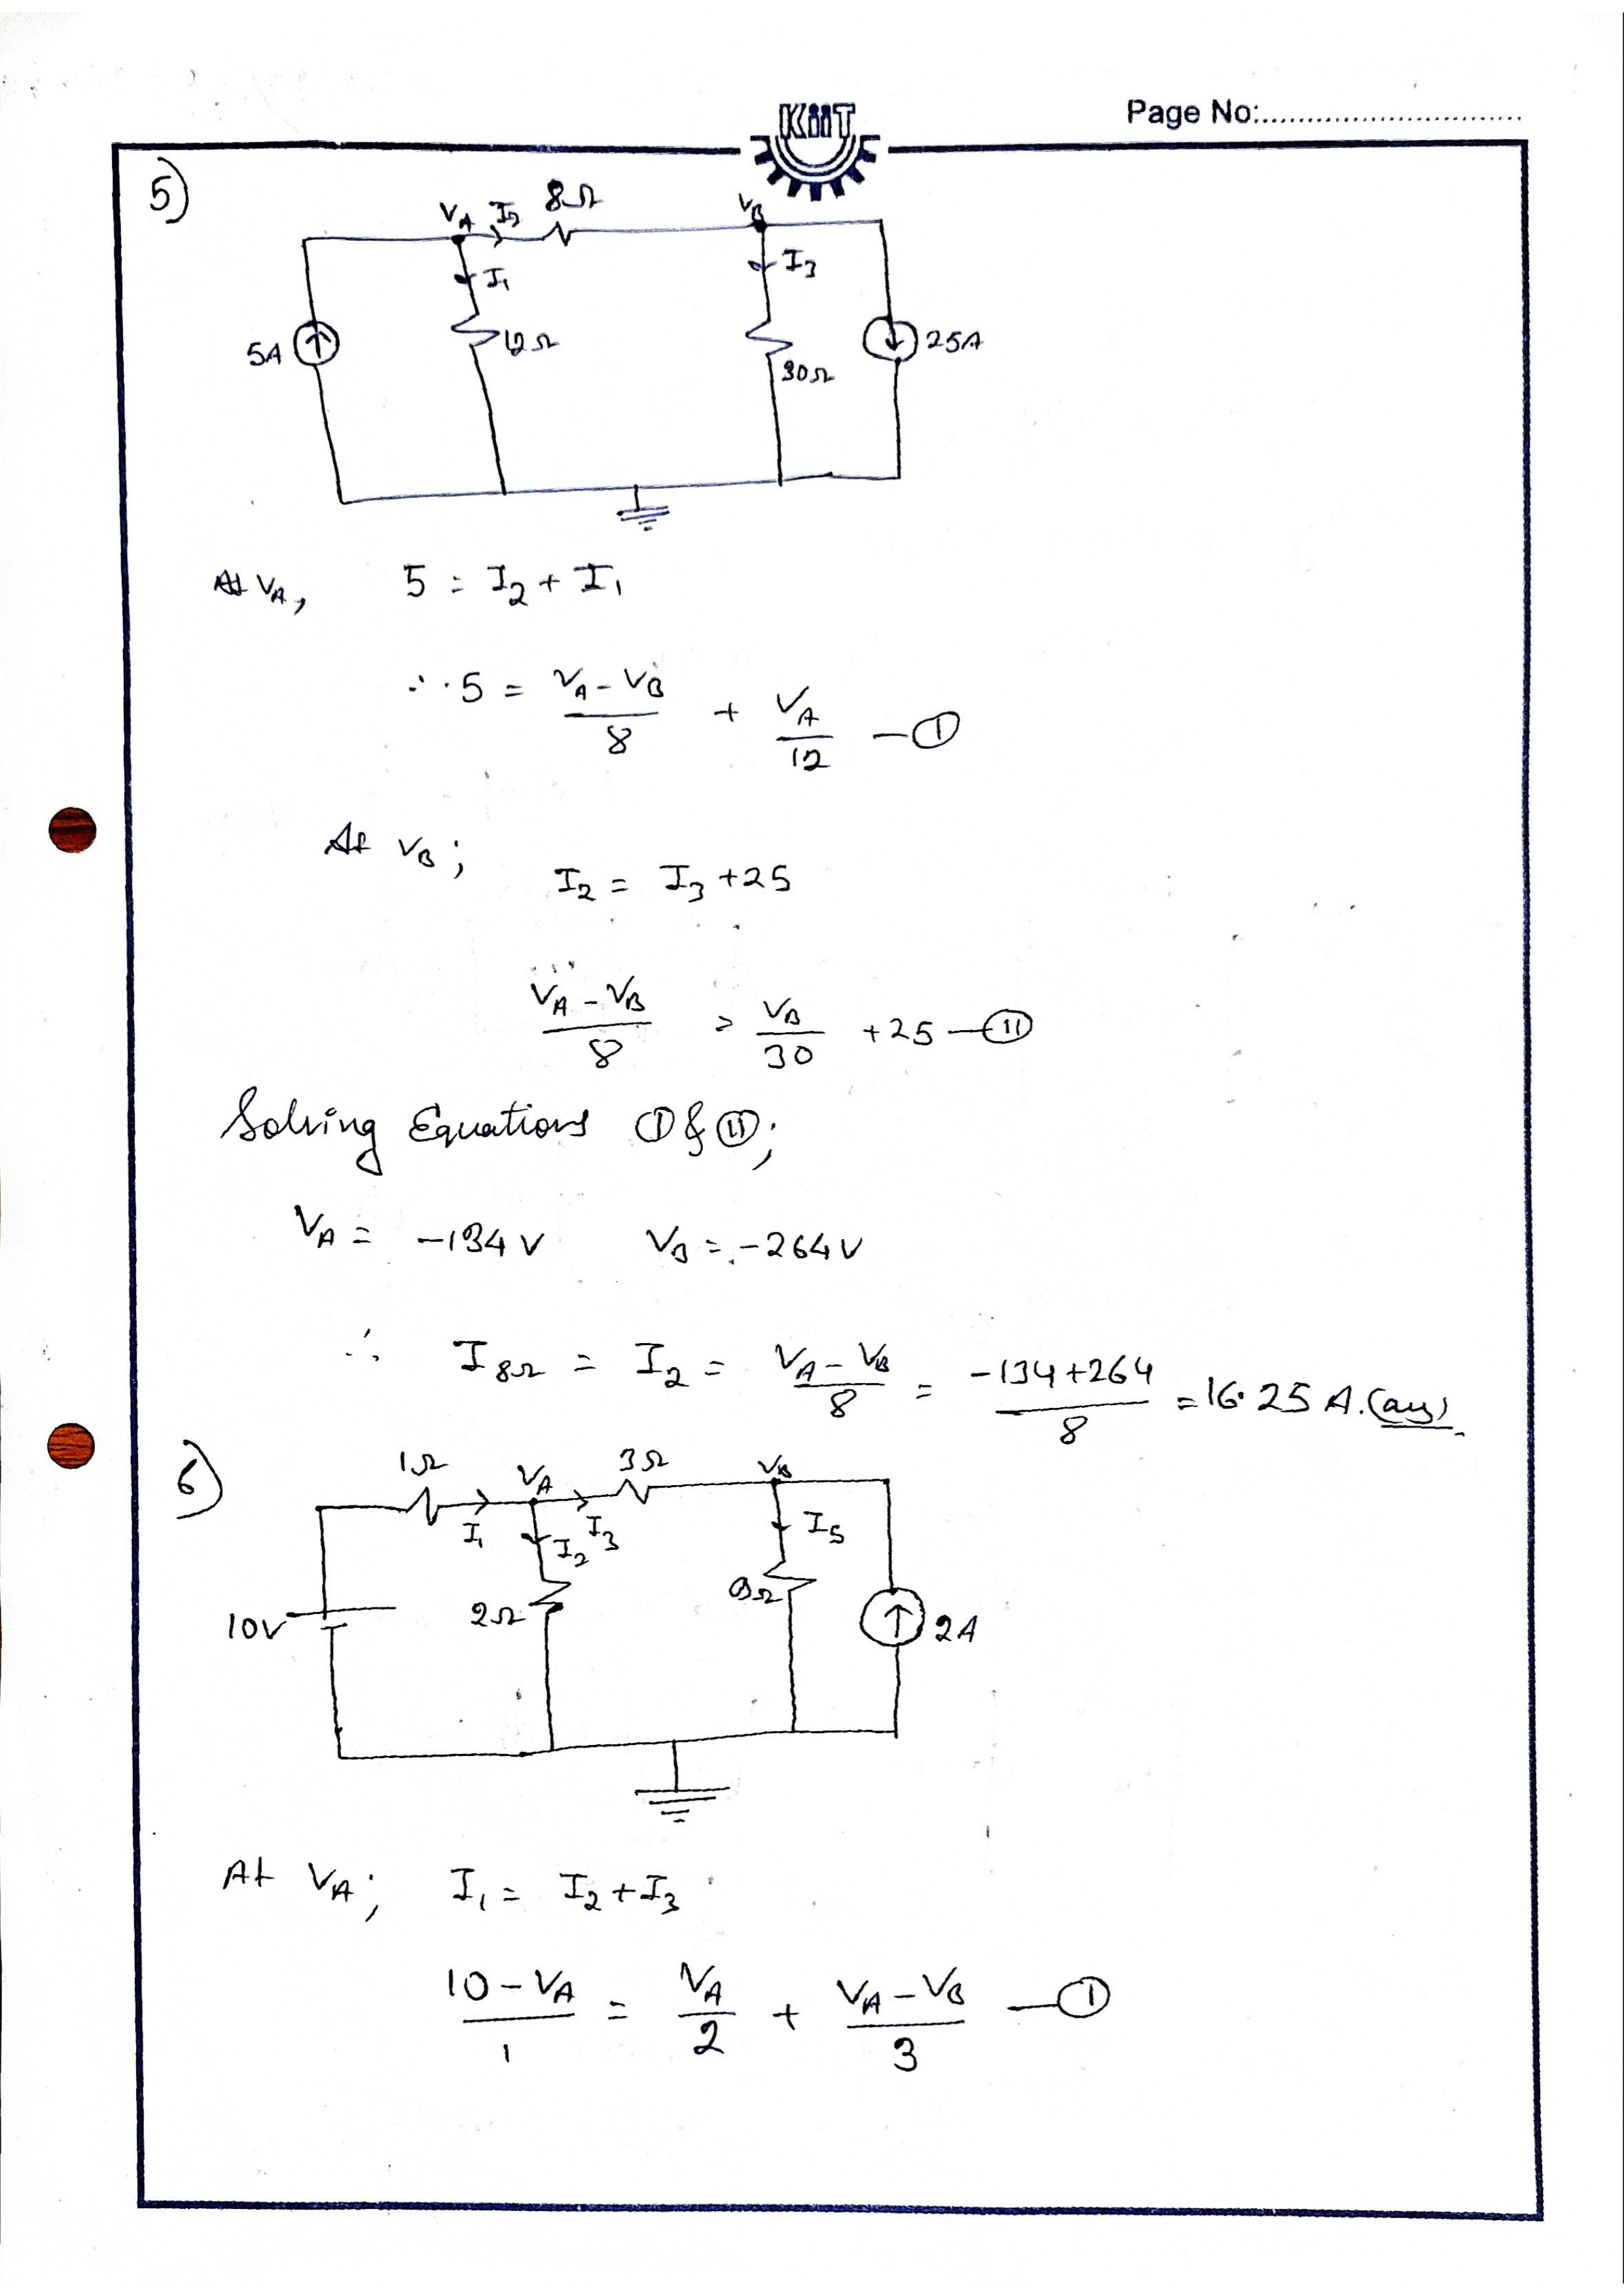 Page No:..............................
KiiT
5)
V_A I_2 8Ω V_B
I_1 I_3
5A 12Ω 30Ω 25A
At V_A, 5 = I_2 + I_1
∴ 5 = (V_A - V_B)/8 + V_A/12 — (I)
At V_B; I_2 = I_3 + 25
(V_A - V_B)/8 = V_B/30 + 25 — (II)
Solving Equations (I) & (II);
V_A = -134 V V_B = -264 V
∴ I_8Ω = I_2 = (V_A - V_B)/8 = (-134 + 264)/8 = 16.25 A. (ans).
6)
1Ω V_A 3Ω V_B
I_1 I_2 I_3 I_5
10V 2Ω 2A
At V_A; I_1 = I_2 + I_3
(10 - V_A)/1 = V_A/2 + (V_A - V_B)/3 — (I)